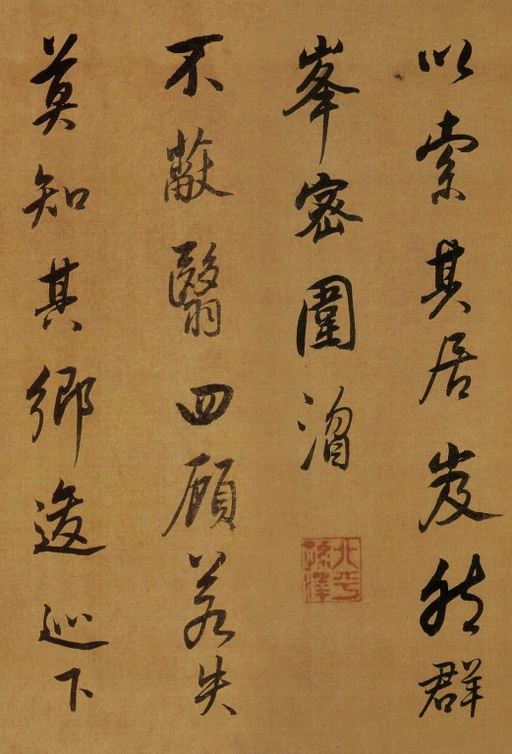 以索其居岌然群
峯密圍
不蔽翳四顧若失
莫知其鄉逡巡下
北平
孫澤